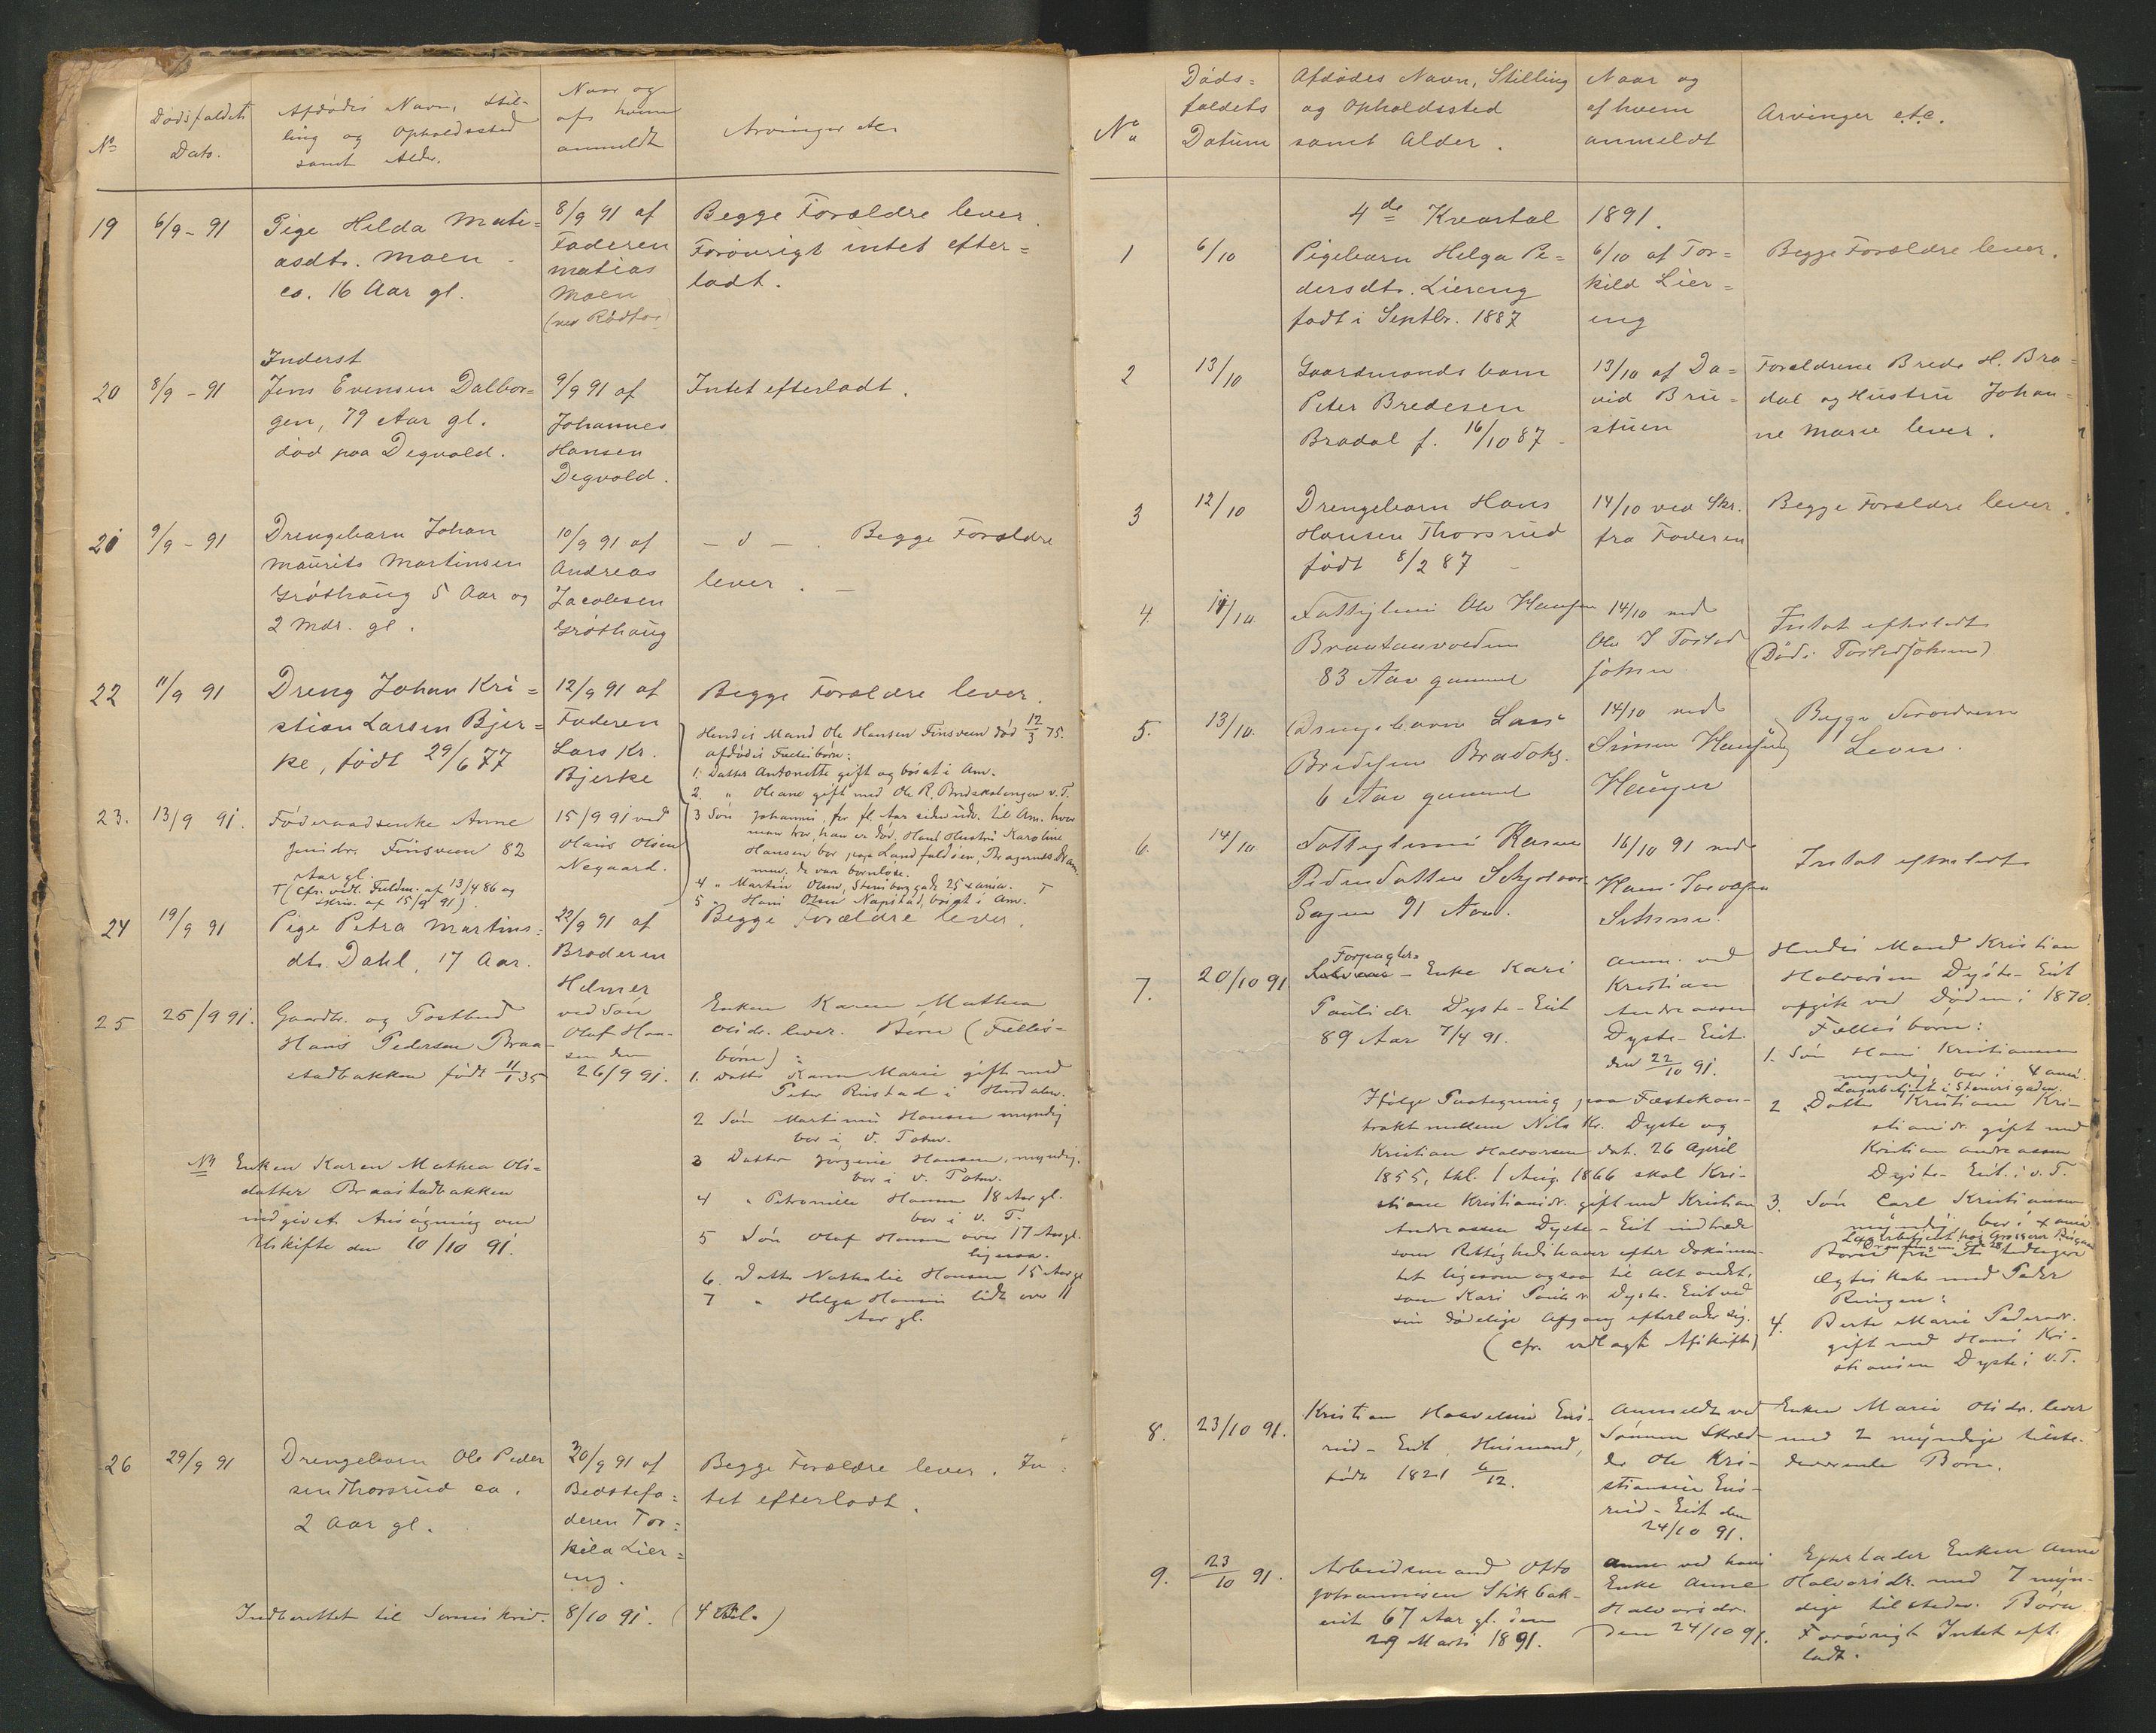 No
Dødsfaldets
Dato.
Afdødes Navn, Stil-
ling og Opholdssted
samt Alder.
Naar og
af hvem
anmeldt
Arvinger etc.
19
6/9 - 91
Pige Hilda Mati-
asdtr. Moen
ca. 16 Aar gl.
8/9 91 af
Faderen
Matias
Moen
Begge Forældre lever.
Forøvrigt intet efter-
ladt.
20
8/9 - 91
Inderst
Jens Evensen Dalbor-
gen, 79 Aar gl.
død paa Degvold.
9/9 91 af
Johannes
Hansen
Degvold.
Intet efterladt.
21
9/9 - 91
Drengebarn Johan
Maurits Martinsen
Grøthaug 5 Aar og
2 Mdr. gl.
10/9 91 af
Andreas
Jacobsen
Grøthaug
Begge Forældre
lever.
22
11/9 91
Dreng Johan Kri-
stian Larsen Bjer-
ke, født 29/6 77
12/9 91 af
Faderen
Lars Kr.
Bjerke
Begge Forældre lever.
23.
13/9 91.
Føderaadsenke Anne
Jensdr. Finsveen 82
Aar gl.
(cfr. vedl. Fuldm. af 13/4 86 og
Skriv. af 15/9 91).
15/9 91 ved
Olaus Olsen
Negaard.
Hendes Mand Ole Hansen Finsveen død 12/3 75.
afdødes Fællesbørn:
1. Datter Antonette gift og bosat i Am.
2. " Oleane gift med Ole R. Bredskalengen v. T.
3 Søn Johannes, for fl. Aar siden udv. til Am. hvor
man tror, han er død. Hans Hustru Karoline
Hansen bor paa Landfaldøen, Bragernes Dram-
men, de var barnløse.
4 " Martin Olsen, Stensberggade 25 Xania.
5 " Hans Olsen Napstad, bosat i Am.
24
19/9 91
Pige Petra Martins-
dtr. Dahl, 17 Aar.
22/9 91 af
Broderen
Helmer
Begge Forældre lever.
25
25/9 91.
Gaardbr. og Postbud
Hans Pedersen Braa-
stadbakken født 11/1 35
ved Søn
Olaf Han-
sen den
26/9 91.
Enken Karen Mathea
Olsdr. lever. Børn (Fælles-
børn):
1. Datter Karen Marie gift med
Peter Rustad i Hurdalen.
2 Søn Martinus Hansen myndig
bor i V. Toten.
3 Datter Jørgine Hansen, myndig.
bor i V. Toten.
4 " Petronille Hansen 18 Aar gl.
bor i V. T.
5 Søn Olaf Hansen over 17 Aar gl.
ligesaa.
6. Datter Nathalie Hansen 15 Aar gl
7 " Helga Hansen lidt over 11
Aar gl.
NB Enken Karen Mathea Ols-
datter Braastadbakken
indgivet Ansøgning om
Uskifte den 10/10 91.
26
29/9 91
Drengebarn Ole Peder
sen Thorsrud ca.
2 Aar gl.
30/9 91 af
Bedstefa-
deren Tor-
kild Lier-
eng.
Begge Forældre lever. In-
tet efterladt.
Indberettet til Sorenskriv. 8/10 91. (4 Bil.)
No
Døds-
faldets
Datum
Afdødes Navn, Stilling
og Opholdssted
samt Alder.
Naar og
af hvem
anmeldt
Arvinger etc.
4de Kvartal 1891.
1
6/10
Pigebarn Helga Pe-
dersdtr. Liereng
født i Septbr. 1887
6/10 af Tor-
kild Lier-
eng
Begge Forældre lever.
2
13/10
Gaardmands barn
Peter Bredesen
Bradal f. 16/10 87
13/10 af Da-
vid Bru-
stuen
Forældrene Brede H. Bra-
dal og Hustru Johan-
ne Marie lever.
3
12/10
Drengebarn Hans
Hansen Thorsrud
født 8/2 87
14/10 ved Skr.
fra Faderen
Begge Forældre lever.
4.
14/10
Fattiglem Ole Hansen
83 Aar gammel
14/10 ved
Intet efterladt
5.
13/10.
Drengebarn Lars
Bredesen
6 Aar gammel
14/10 ved
Simen Hansen
Begge Forældrene
Lever.
6.
14/10
Fattiglem Karen
Pedersdatter
91 Aar.
16/10 91 ved
Intet efterladt
7.
20/10 91
Forpagters
Enke Kari
Paulsdr. Dyste-Eiet
89 Aar 7/4 91.
anm. ved
Kristian
Andreassen
Dyste-Eiet
den 22/10 91.
Hendes Mand Kristian
Halvorsen Dyste-Eiet
afgik ved Døden i 1870.
Fællesbørn:
1. Søn Hans Kristiansen
myndig, bor i Xania.
Lagerbetjent i Stenersgaden.
2 Datter Kristiane Kri-
stiansdr. gift med
Kristian Andreassen
Dyste-Eiet i v. T.
3. Søn Carl Kristiansen
myndig, bor i Xania
Børn fra et tidligere
Ægteskab med Peder
Ringen:
4. Berte Marie Pedersdr.
gift med Hans Kri-
stiansen Dyste i V. T.
Ifølge Paategning paa Fæstekon-
trakt mellem Nils Kr. Dyste og
Kristian Halvorsen dat. 26 April
1855, thl. 1 Aug. 1866 skal Kri-
stiane Kristiansdr. gift med Kristian
Andreassen Dyste-Eiet indtræde
som Rettighedshaver efter Dokumen-
tet ligesom ogsaa til Alt andet,
som Kari Paulsdr. Dyste-Eiet ved
sin dødelige Afgang efterlader sig.
(cfr. vedlagte Afskrift)
8.
23/10 91.
Kristian Haavelsen Ens-
rud-Eiet, Husmand,
født 1821 6/12.
Anmeldt ved
Sønnen Skræd-
der Ole Kri-
stiansen Ens-
rud-Eiet den
24/10 91.
Enken Marie Olsdr. lever
med 2 myndige tilste-
deværende Børn.
9.
23/10 91.
Arbeidsmand Otto
Johannesen Stikbak-
eiet 67 Aar gl. den
29 Marts 1891.
anm. ved hans
Enke Anne
Halvorsdr.
den 24/10 91.
Efterlader Enken Anne
Halvorsdr. med 7 myn-
dige tilstedev. Børn
Forøvrigt Intet eft.
ladt.